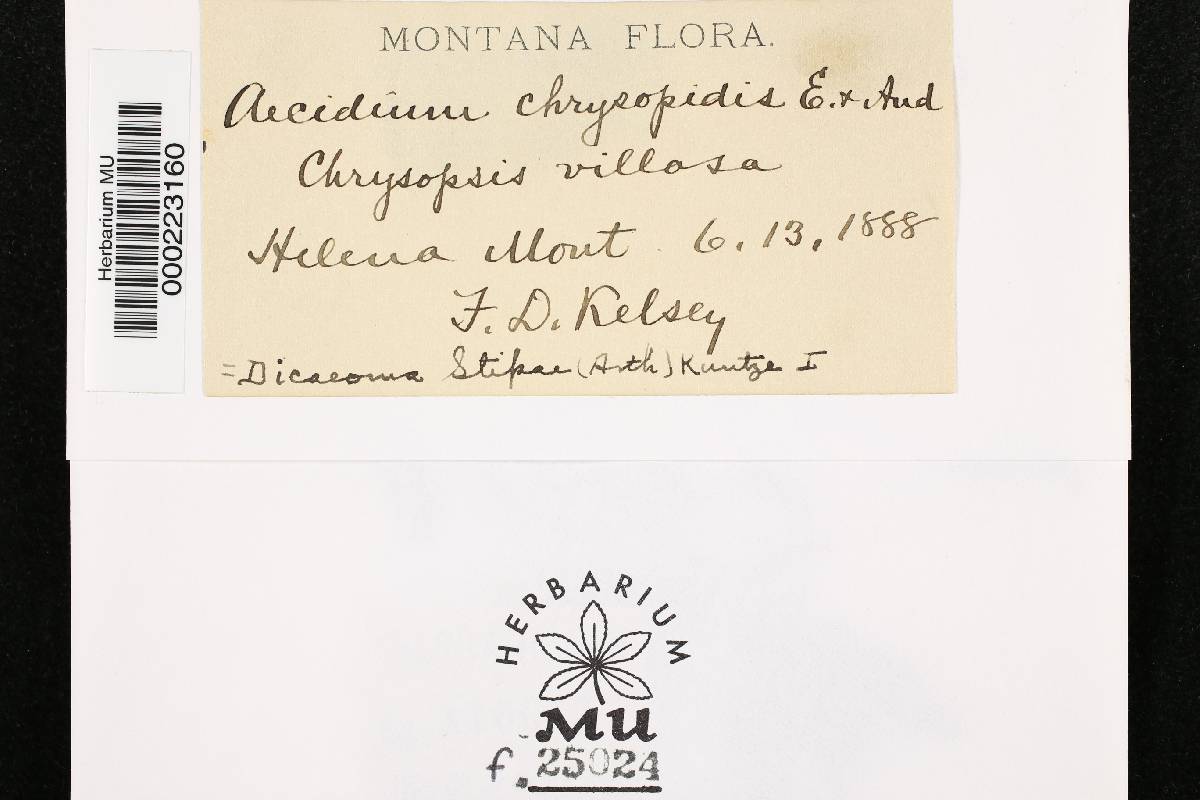 MONTANA FLORA.
Aecidium chrysopidis E. & And
Chrysopsis villosa
Helena Mont. 6. 13, 1888
F. D. Kelsey
= Dicaeoma Stipae (Arth) Kuntze I
Herbarium MU
000223160
HERBARIUM
MU
f. 25024